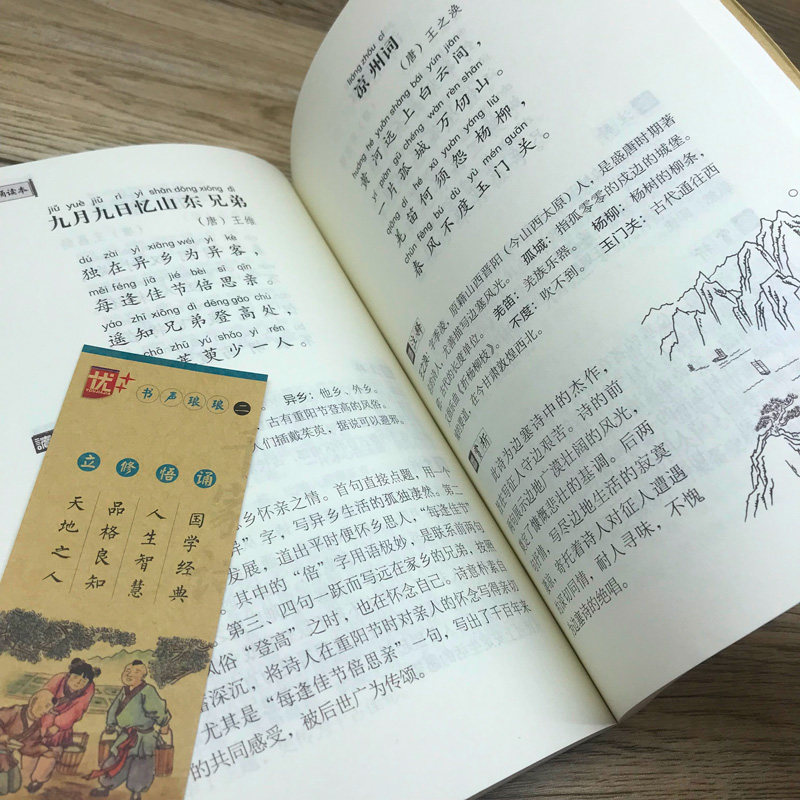 诵读本
jiǔ yuè jiǔ rì yì shān dōng xiōng dì
九月九日忆山东兄弟
（唐）王维
dú zài yì xiāng wéi yì kè
独在异乡为异客，
měi féng jiā jié bèi sī qīn
每逢佳节倍思亲。
yáo zhī xiōng dì dēng gāo chù
遥知兄弟登高处，
chā zhū yú shǎo yì rén
茱萸少一人。
异乡：他乡、外乡。
古有重阳节登高的风俗。
人们插戴茱萸，据说可以避邪。
乡怀亲之情。首句直接点题，用一个
”字，写异乡生活的孤独凄然。第二
发展，道出平时便怀乡思人，“每逢佳节
。其中的“倍”字用语极妙，是联系前两句
。第三、四句一跃而写远在家乡的兄弟，按照
风俗“登高”之时，也在怀念自己。诗意朴素自
深沉，将诗人在重阳节时对亲人的怀念写得亲切
尤其是“每逢佳节倍思亲”一句，写出了千百年来
的共同感受，被后世广为传颂。
优++
书声琅琅 二
立修悟诵
国学经典
人生智慧
品格良知
天地之人
liáng zhōu cí
凉州词
（唐）王之涣
huáng hé yuǎn shàng bái yún jiān
黄河远上白云间，
yí piàn gū chéng wàn rèn shān
一片孤城万仞山。
qiāng dí hé xū yuàn yáng liǔ
羌笛何须怨杨柳，
chūn fēng bú dù yù mén guān
春风不度玉门关。
注解
之涣：字季凌，原籍山西晋阳（今山西太原）人，是盛唐时期著
人，尤善描写边塞风光。孤城：指孤零零的戍边的城堡。
古代的长度单位。羌笛：羌族乐器。杨柳：杨树的柳条，
《折杨柳枝》。不度：吹不到。玉门关：古代通往西
要道，在今甘肃敦煌西北。
赏析
此诗为边塞诗中的杰作，
写征人守边艰苦。诗的前
展示边地广漠壮阔的风光，
定了慷慨悲壮的基调。后两
情，写尽边地生活的寂寞
寄托着诗人对征人遭遇
深切同情，耐人寻味，不愧
边塞诗的绝唱。